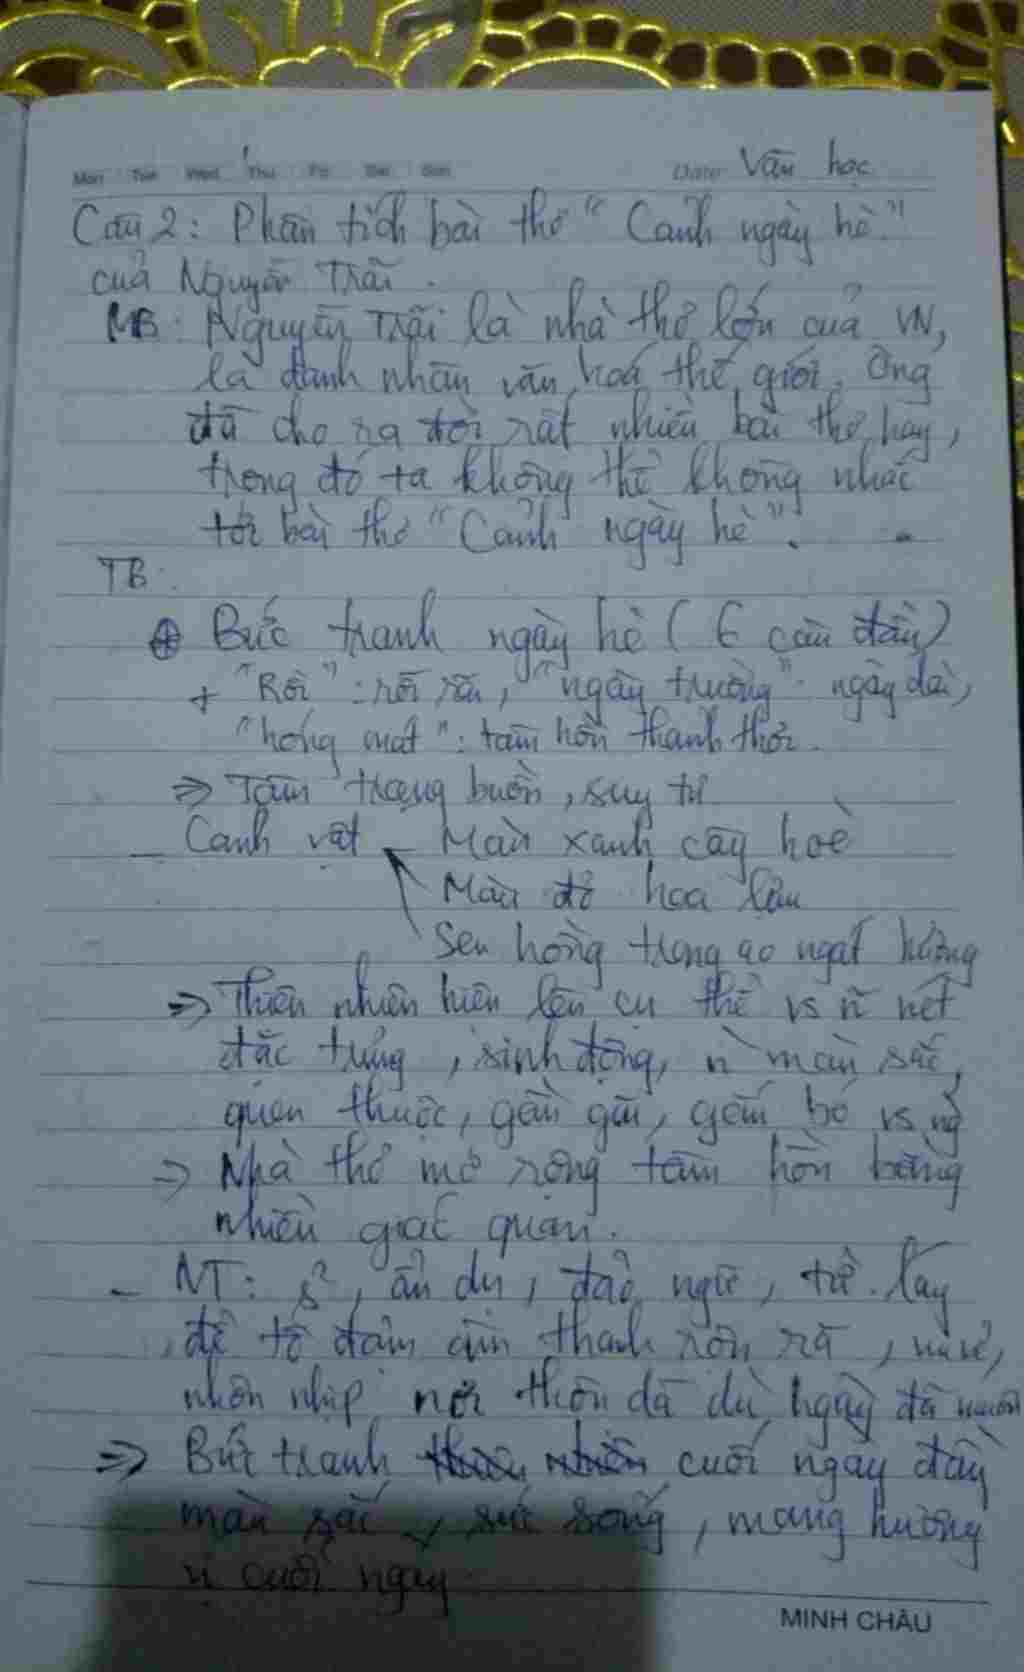 Mon Tue Wed Thu Fri Sat Sun Date Văn học
Câu 2: Phân tích bài thơ "Cảnh ngày hè"
của Nguyễn Trãi.
MB: Nguyễn Trãi là nhà thơ lớn của VN,
là danh nhân văn hoá thế giới. Ông
đã cho ra đời rất nhiều bài thơ hay,
trong đó ta không thể không nhắc
tới bài thơ "Cảnh ngày hè".
TB:
⊕ Bức tranh ngày hè (6 câu đầu)
+ "Rồi": rỗi rãi, "ngày trường": ngày dài,
"hóng mát": tâm hồn thanh thơi.
=> Tâm trạng buồn, suy tư
- Cảnh vật - Màu xanh cây hoè
Màu đỏ hoa lựu
Sen hồng trong ao ngát hương
=> Thiên nhiên hiện lên cụ thể vs n~ nét
đặc trưng, sinh động, n` màu sắc,
quen thuộc, gần gũi, gắn bó vs ng
=> Nhà thơ mở rộng tâm hồn bằng
nhiều giác quan.
- NT: s², ẩn dụ, đảo ngữ, từ láy
để tô đậm âm thanh rộn rã,
nhộn nhịp nơi thôn dã dù ngày đã muộn
=> Bức tranh cuối ngày đầy
màu sắc, sức sống, mang hương
vị cuối ngày
MINH CHÂU